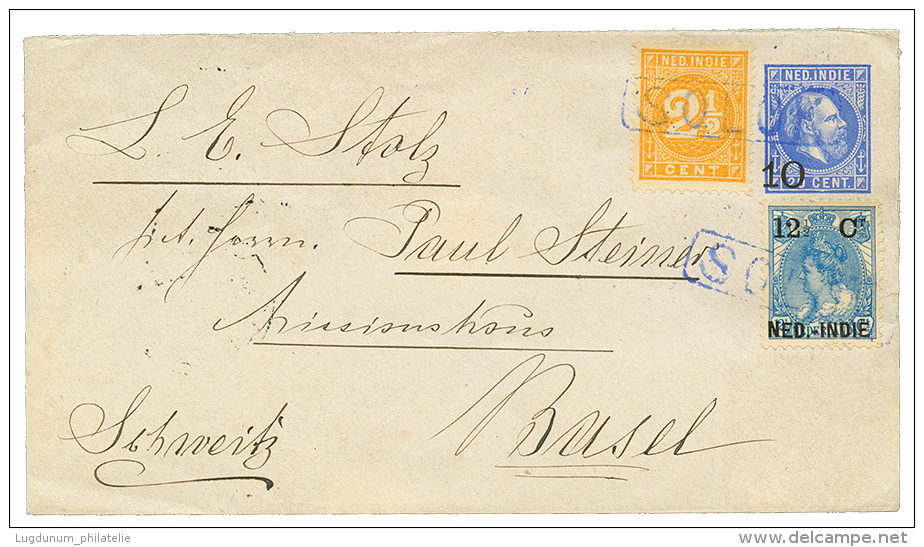 NED. INDIE
2 1/2
CENT
NED. INDIE
10
CENT.
12½ Ct
NED.-INDIE
L. E. Stolz
Paul Steiner
Missionshaus
Basel
Schweitz
Lugdunum_philatelie
www.delcampe.net